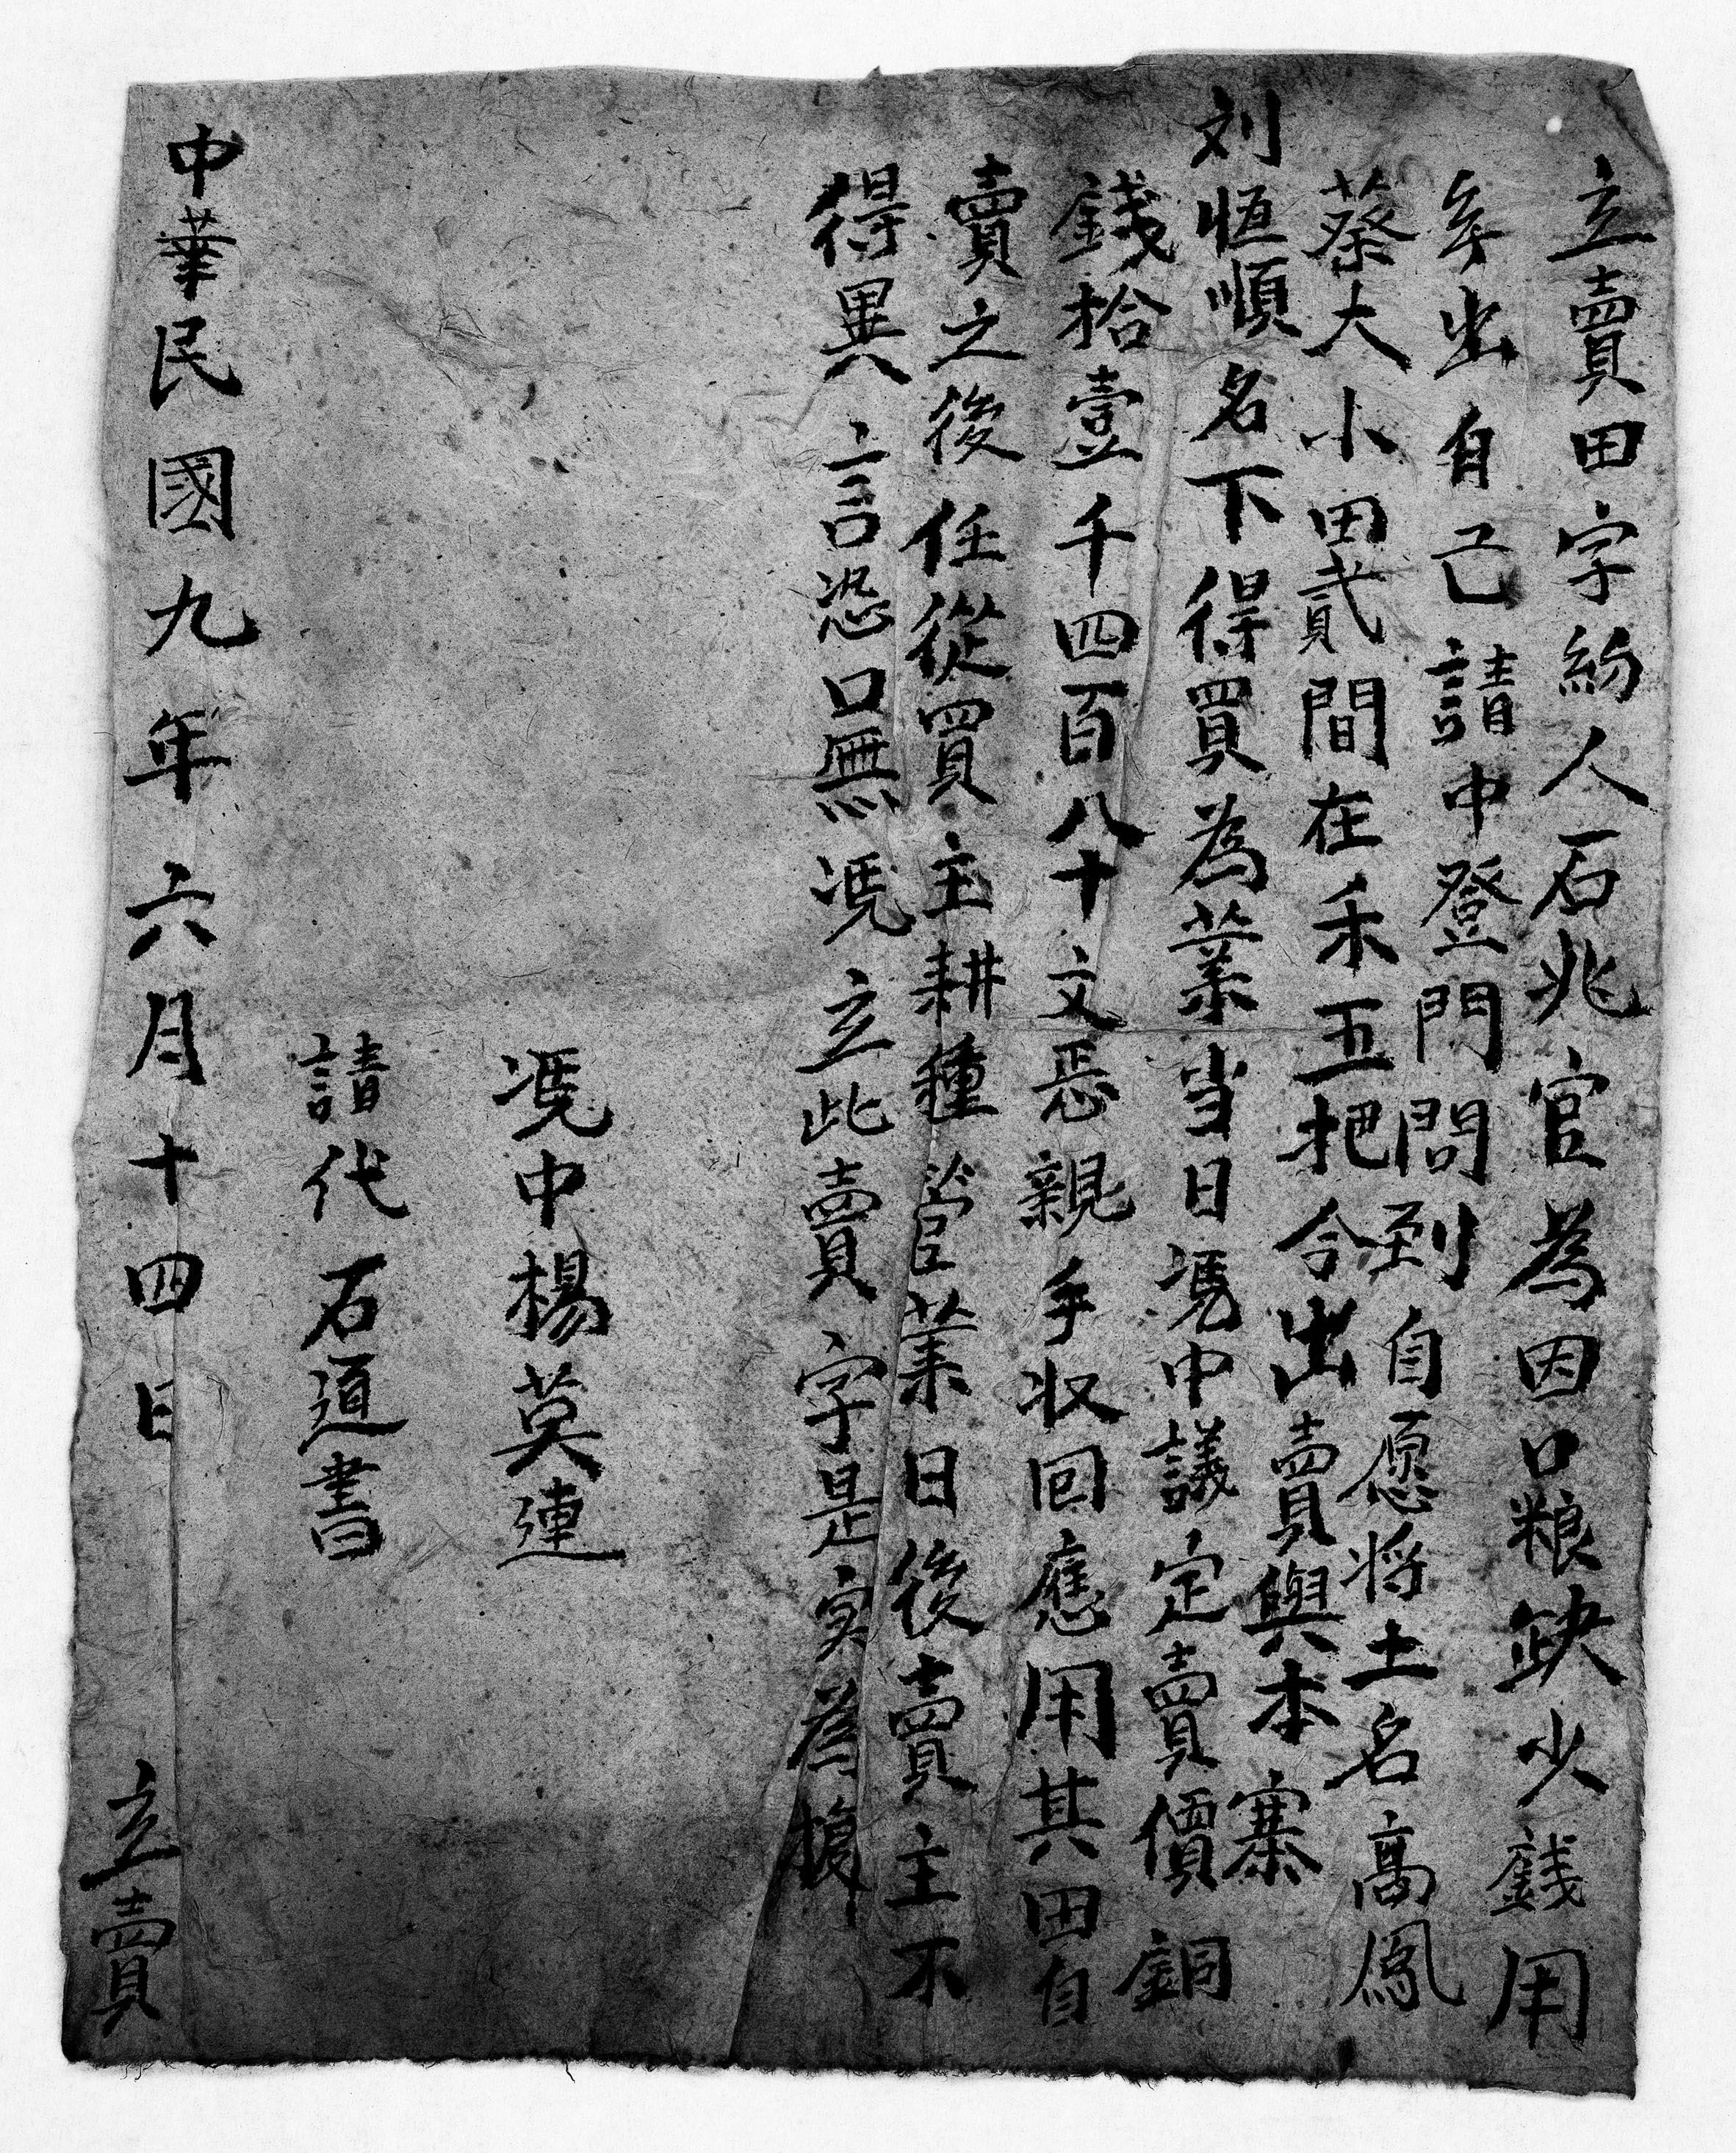 立賣田字約人石兆官為因口粮缺少錢用
年出自己請中登門問到自愿将土名高鳳
蔡大小田貳間在禾五把今出賣與本寨
刘恒順名下得買為業当日凴中議定賣價銅
錢拾壹千四百八十文恶親手收回應用其田自
賣之後任從買主耕種管業日後賣主不
得異言恐口無凴立此賣字是实為㨿
凴中楊莫連
請代石道書
中華民國九年六月十四日 立賣